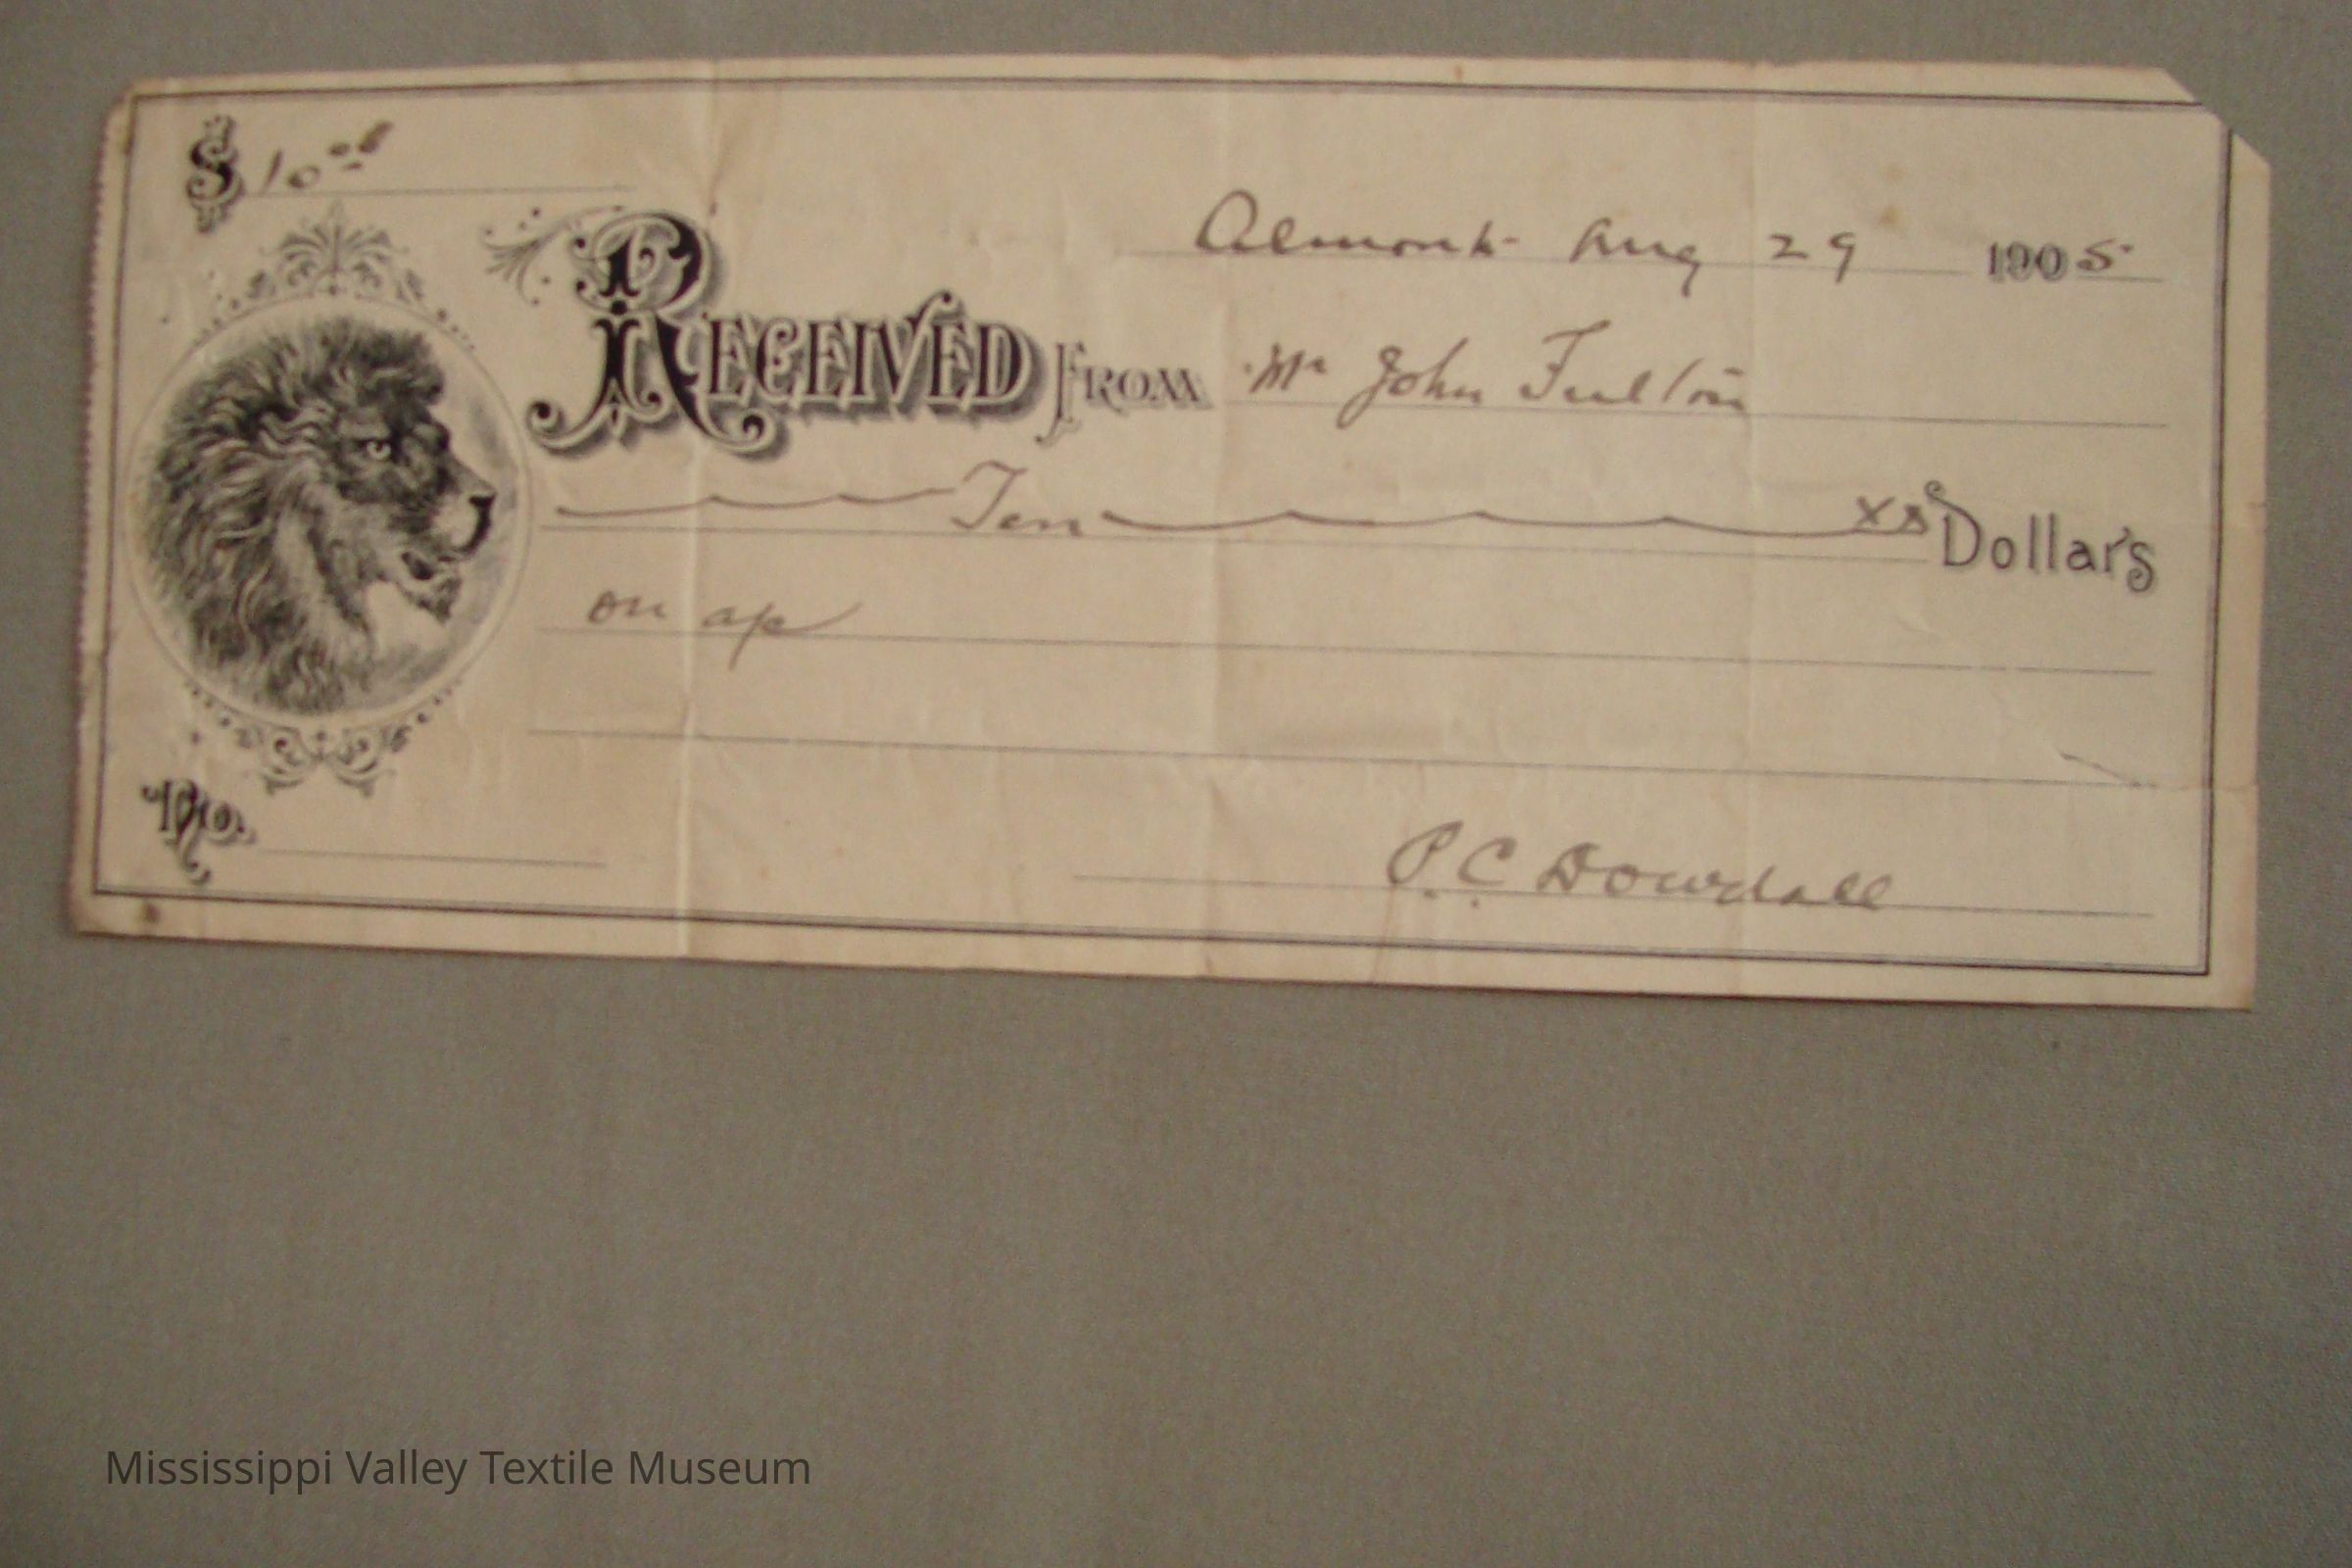 $ 10 00
Almonte Aug 29 1905
RECEIVED FROM Mr John Fulton
Ten xx Dollars
on ap
No.
P.C Dowdall
Mississippi Valley Textile Museum